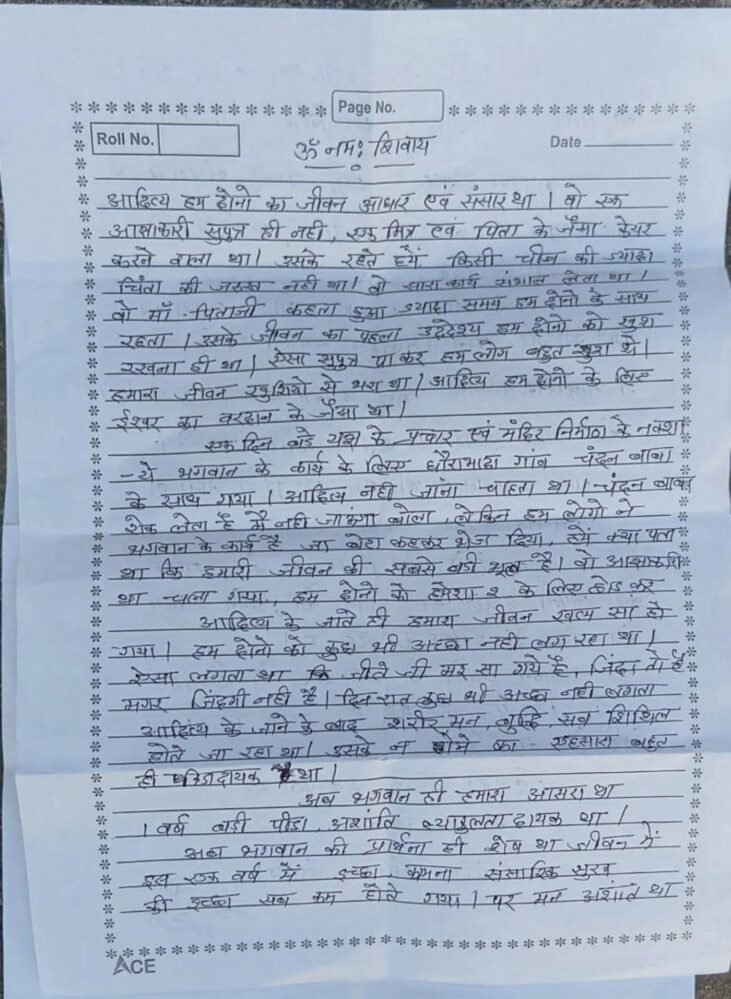 Page No.
Roll No.
ॐ नमः शिवाय
Date
आदित्य हम दोनो का जीवन आधार एवं संसार था । वो एक
आज्ञाकारी सुपुत्र ही नही, एक मित्र एवं पिता के जैसा केयर
करने वाला था। उसके रहते हमें किसी चीज की ज्यादा
चिंता की जरूरत नही था। वो सारा कार्य संभाल लेता था।
वो माँ-पिताजी कहता हुआ ज्यादा समय हम दोनो के साथ
रहता । उसके जीवन का पहला उद्देश्य हम दोनो को खुश
रखना ही था। ऐसा सुपुत्र पा कर हम लोग बहुत खुश थे।
हमारा जीवन खुशियो से भरा था। आदित्य हम दोनो के लिए
ईश्वर का वरदान के जैसा था।
एक दिन बडे यज्ञ के प्रचार एवं मंदिर निर्माण के नक्शा
ये भगवान के कार्य के लिए धौराभाठा गांव चंदन बाबा
के साथ गया । आदित्य नही जाना चाहता था। चंदन बाबा
रोक लेता है मै नही जाऊंगा बोला, लेकिन हम लोगो ने
भगवान के कार्य है जा बेटा कहकर भेज दिया, हमें क्या पता
था कि हमारी जीवन की सबसे बडी भूल है। वो आज्ञाकारी
था चला गया, हम दोनो को हमेशा २ के लिए छोड कर
आदित्य के जाते ही हमारा जीवन खत्म सा हो
गया। हम दोनो को कुछ भी अच्छा नही लग रहा था।
ऐसा लगता था कि जीते जी मर सा गये है, जिंदा तो है
मगर जिंदगी नही है। दिन-रात कुछ भी अच्छा नही लगता
आदित्य के जाने के बाद शरीर, मन, बुद्धि, सब शिथिल
होते जा रहा था। उसके न होने का एहसास बहुत
ही था।
अब भगवान ही हमारा आसरा था
1 वर्ष बडी पीडा, अशांति व्याकुलता दायक था।
अब भगवान की प्रार्थना ही शेष था जीवन में
इस एक वर्ष में इच्छा, कामना संसारिक सुख
की इच्छा सब कम होते गया। पर मन अशांत था
ACE